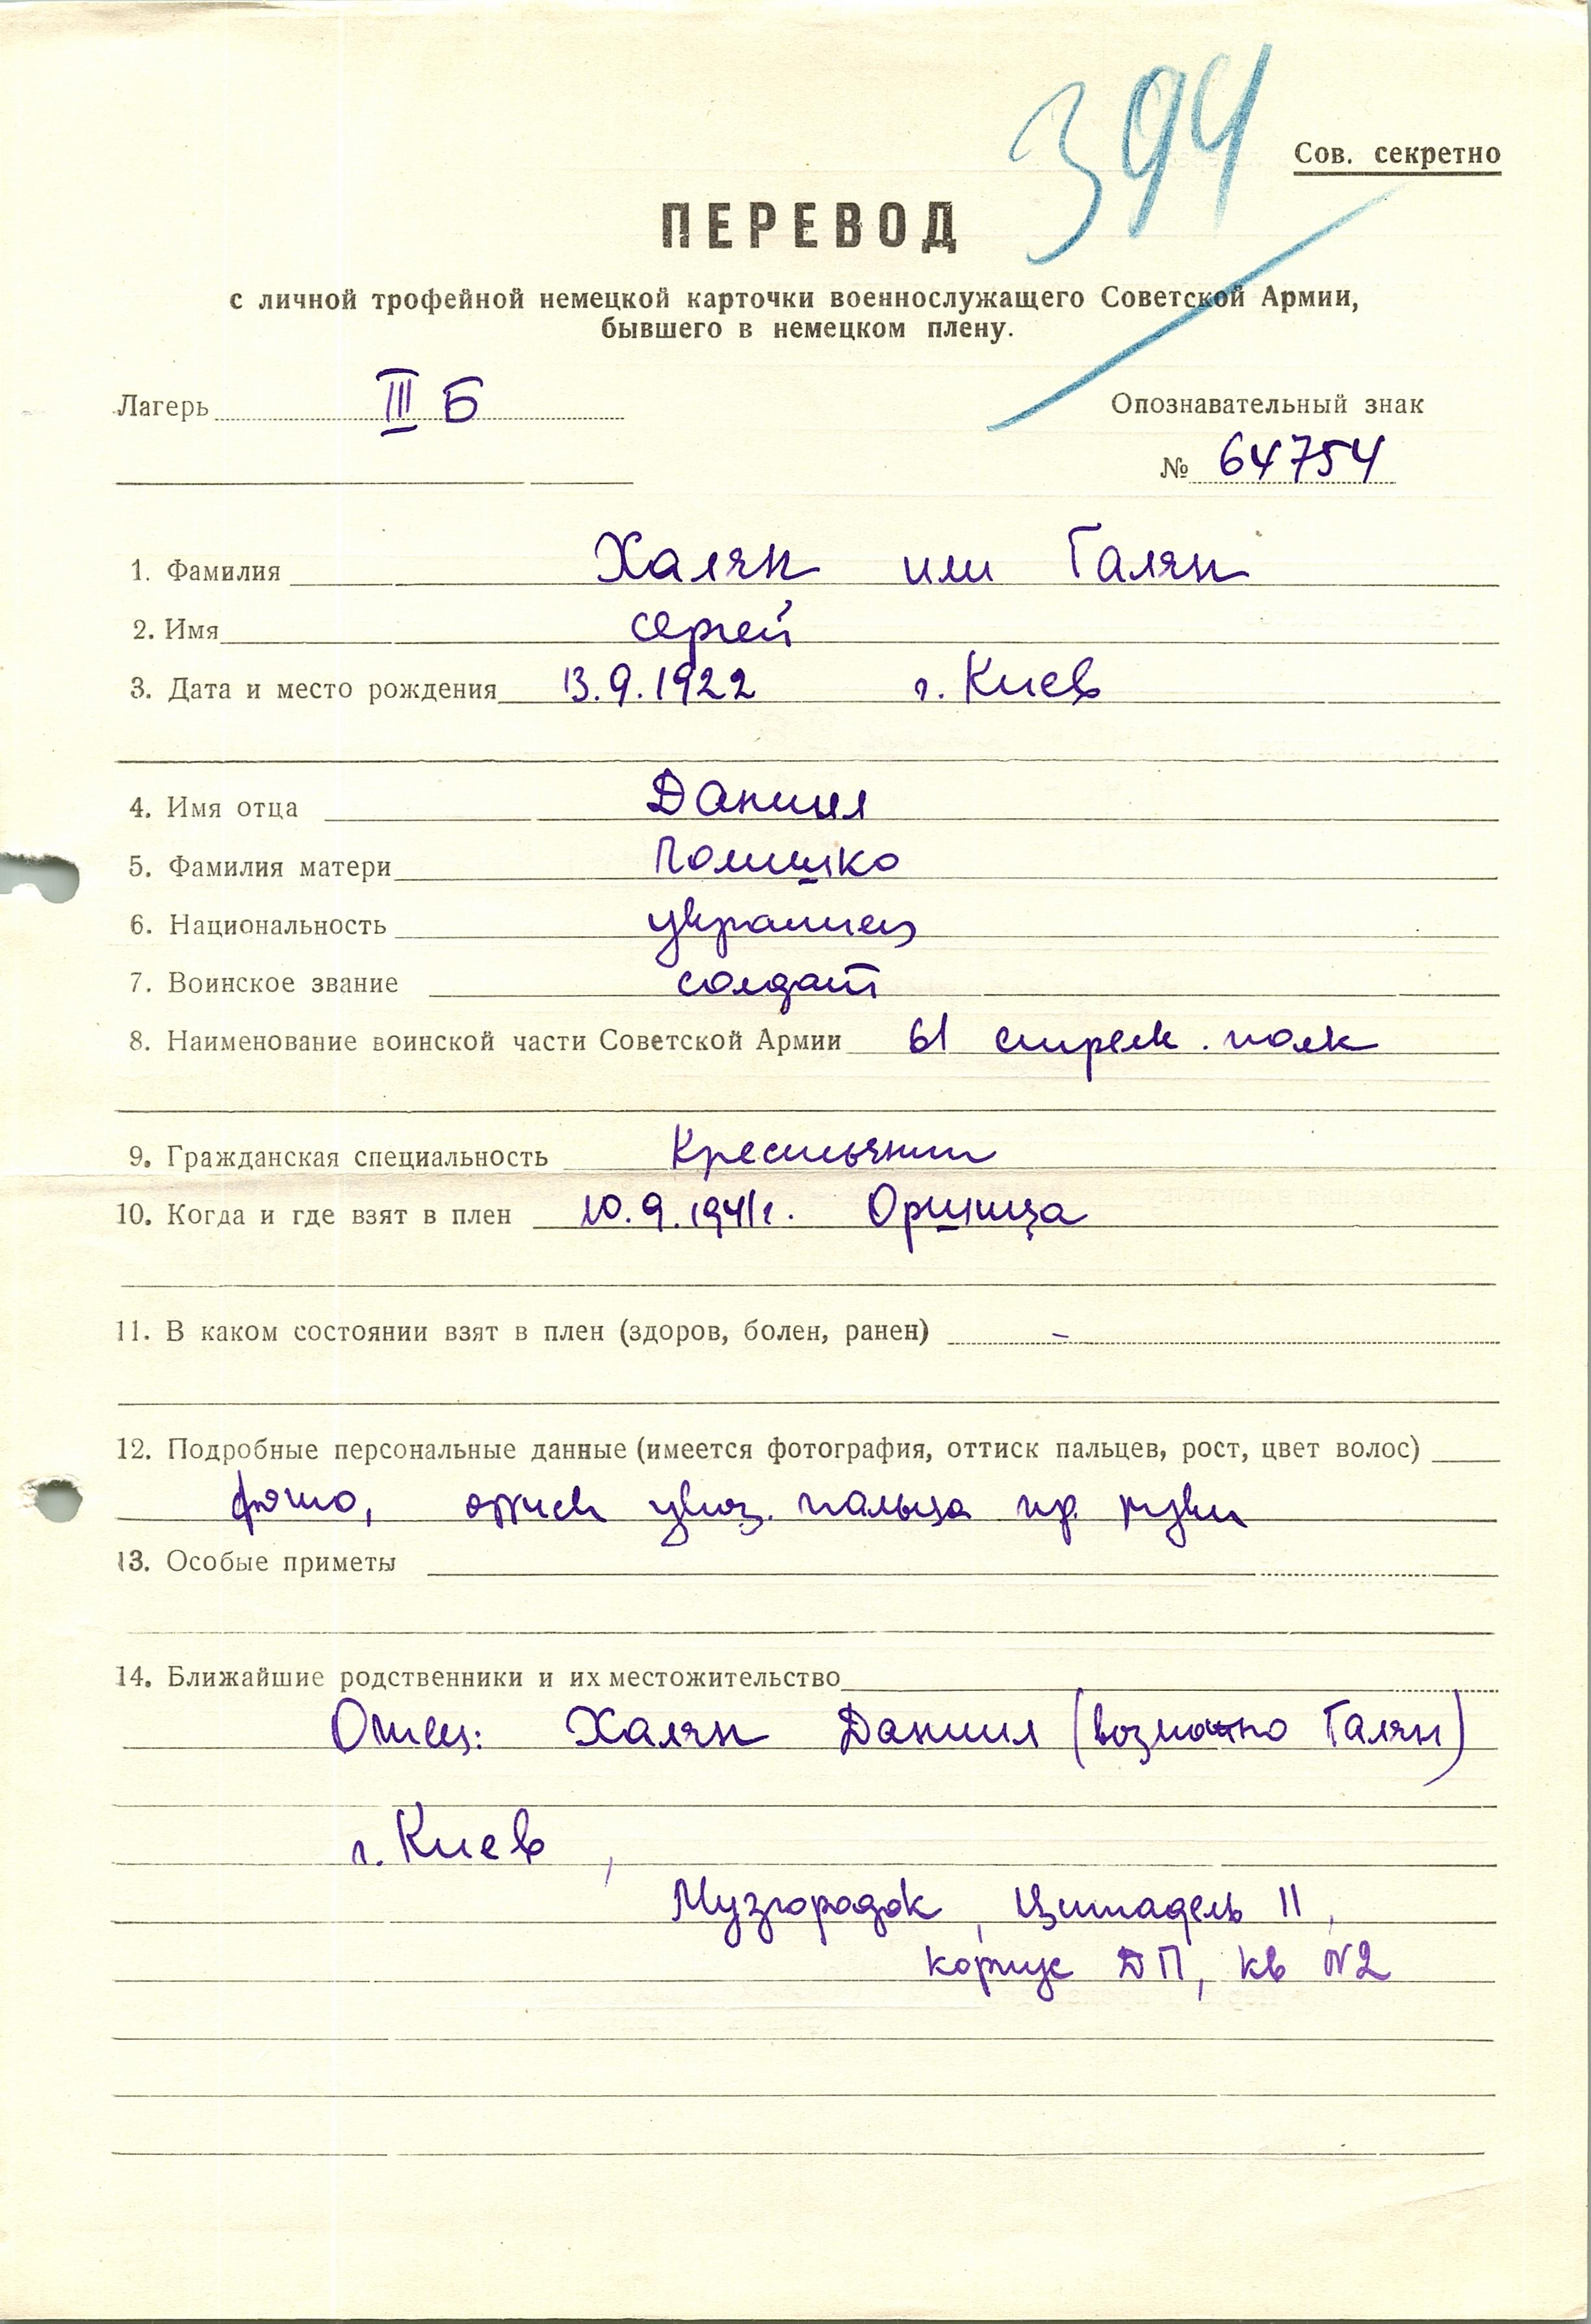 394
Сов. секретно
ПЕРЕВОД
с личной трофейной немецкой карточки военнослужащего Советской Армии,
бывшего в немецком плену.
Лагерь III Б
Опознавательный знак
№ 64754
1. Фамилия Халян или Галян
2. Имя Сергей
3. Дата и место рождения 13.9.1922 г. Киев
4. Имя отца Даниил
5. Фамилия матери Полишко
6. Национальность украинец
7. Воинское звание солдат
8. Наименование воинской части Советской Армии 61 стрелк. полк
9. Гражданская специальность Крестьянин
10. Когда и где взят в плен 10.9.1941г. Оршица
11. В каком состоянии взят в плен (здоров, болен, ранен) –
12. Подробные персональные данные (имеется фотография, оттиск пальцев, рост, цвет волос)
фото, оттиск указ. пальца пр. руки
13. Особые приметы
14. Ближайшие родственники и их местожительство
Отец: Халян Даниил (возможно Галян)
г. Киев,
Музгородок, Цитадель II,
корпус ДП, кв №2